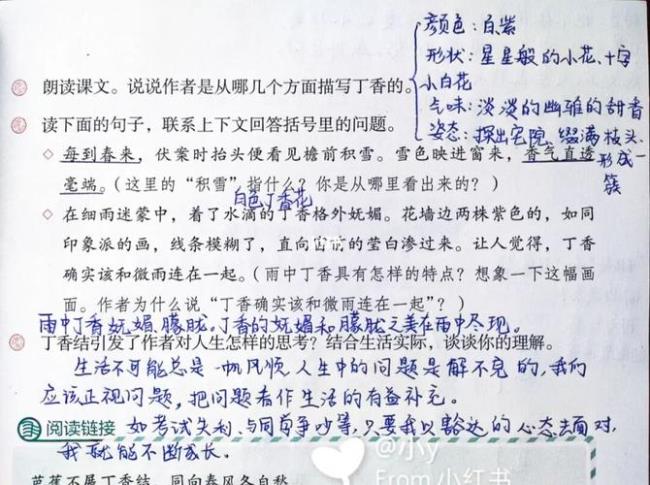 颜色：白、紫
形状：星星般的小花、十字
小白花
气味：淡淡的幽雅的甜香
姿态：探出宅院、缀满枝头、
形成一簇
朗读课文。说说作者是从哪几个方面描写丁香的。
读下面的句子，联系上下文回答括号里的问题。
◇ 每到春来，伏案时抬头便看见檐前积雪。雪色映进窗来，香气直透
毫端。（这里的“积雪”指什么？你是从哪里看出来的？）
白色丁香花
◇ 在细雨迷蒙中，着了水滴的丁香格外妩媚。花墙边两株紫色的，如同
印象派的画，线条模糊了，直向窗前的莹白渗过来。让人觉得，丁香
确实该和微雨连在一起。（雨中丁香具有怎样的特点？想象一下这幅画
面。作者为什么说“丁香确实该和微雨连在一起”？）
雨中丁香妩媚、朦胧。丁香的妩媚和朦胧之美在雨中尽现。
丁香结引发了作者对人生怎样的思考？结合生活实际，谈谈你的理解。
生活不可能总是一帆风顺，人生中的问题是解不完的，我们
应该正视问题，把问题看作生活的有益补充。
阅读链接 如考试失利、与同学争吵等，只要我以豁达的心态去面对，
我就能不断成长。
@小y
From 小红书
芭蕉不展丁香结，同向春风各自愁。